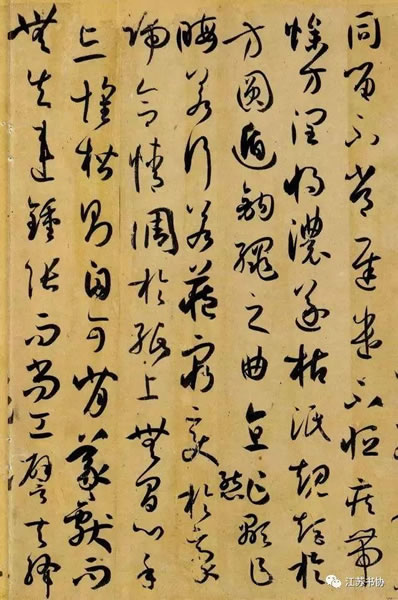 同留不常遲遣不恒疾帶
燥方潤將濃遂枯泯規矩於
方圓遁鉤繩之曲直乍顯乍
晦若行若藏窮變態於毫
端合情調於紙上無間心手
忘懷楷則自可背羲獻而
無失違鍾張而尚工譬夫絳
江苏书协